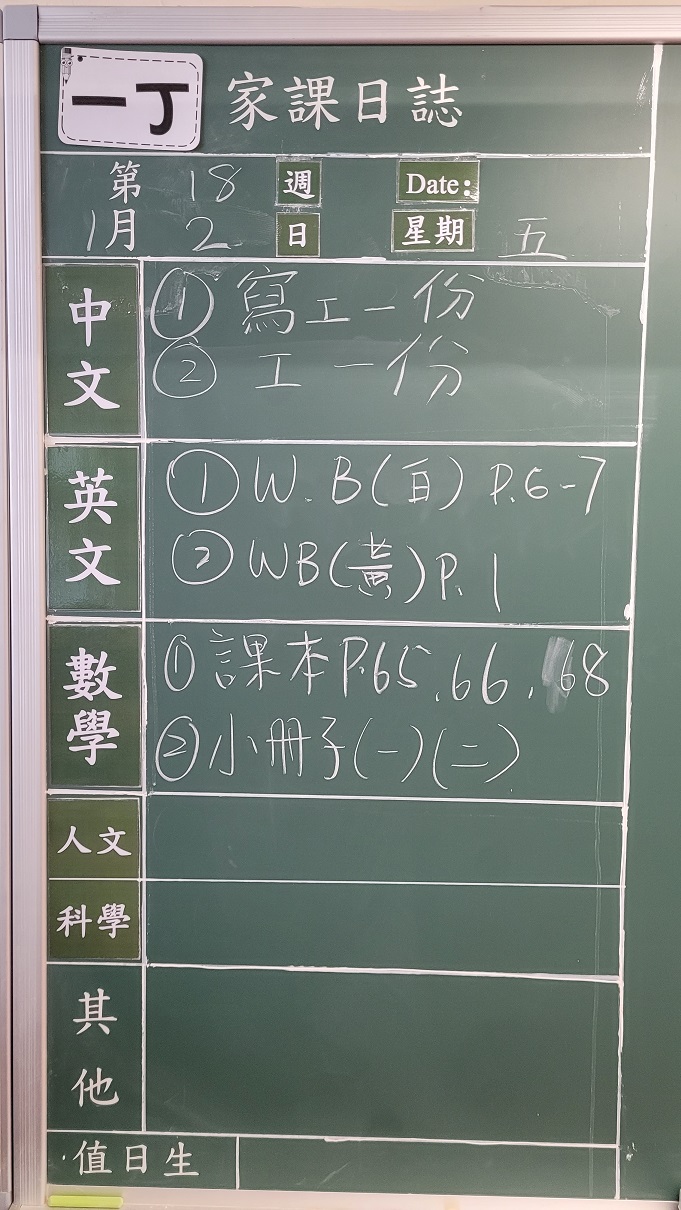 一丁 家課日誌
第 18 週 Date:
1月 2 日 星期 五
中文
① 寫工一份
② 工一份
英文
① W.B(白) P.6-7
② WB(黃)P.1
數學
① 課本P.65,66,68
② 小冊子(一)(二)
人文
科學
其他
值日生